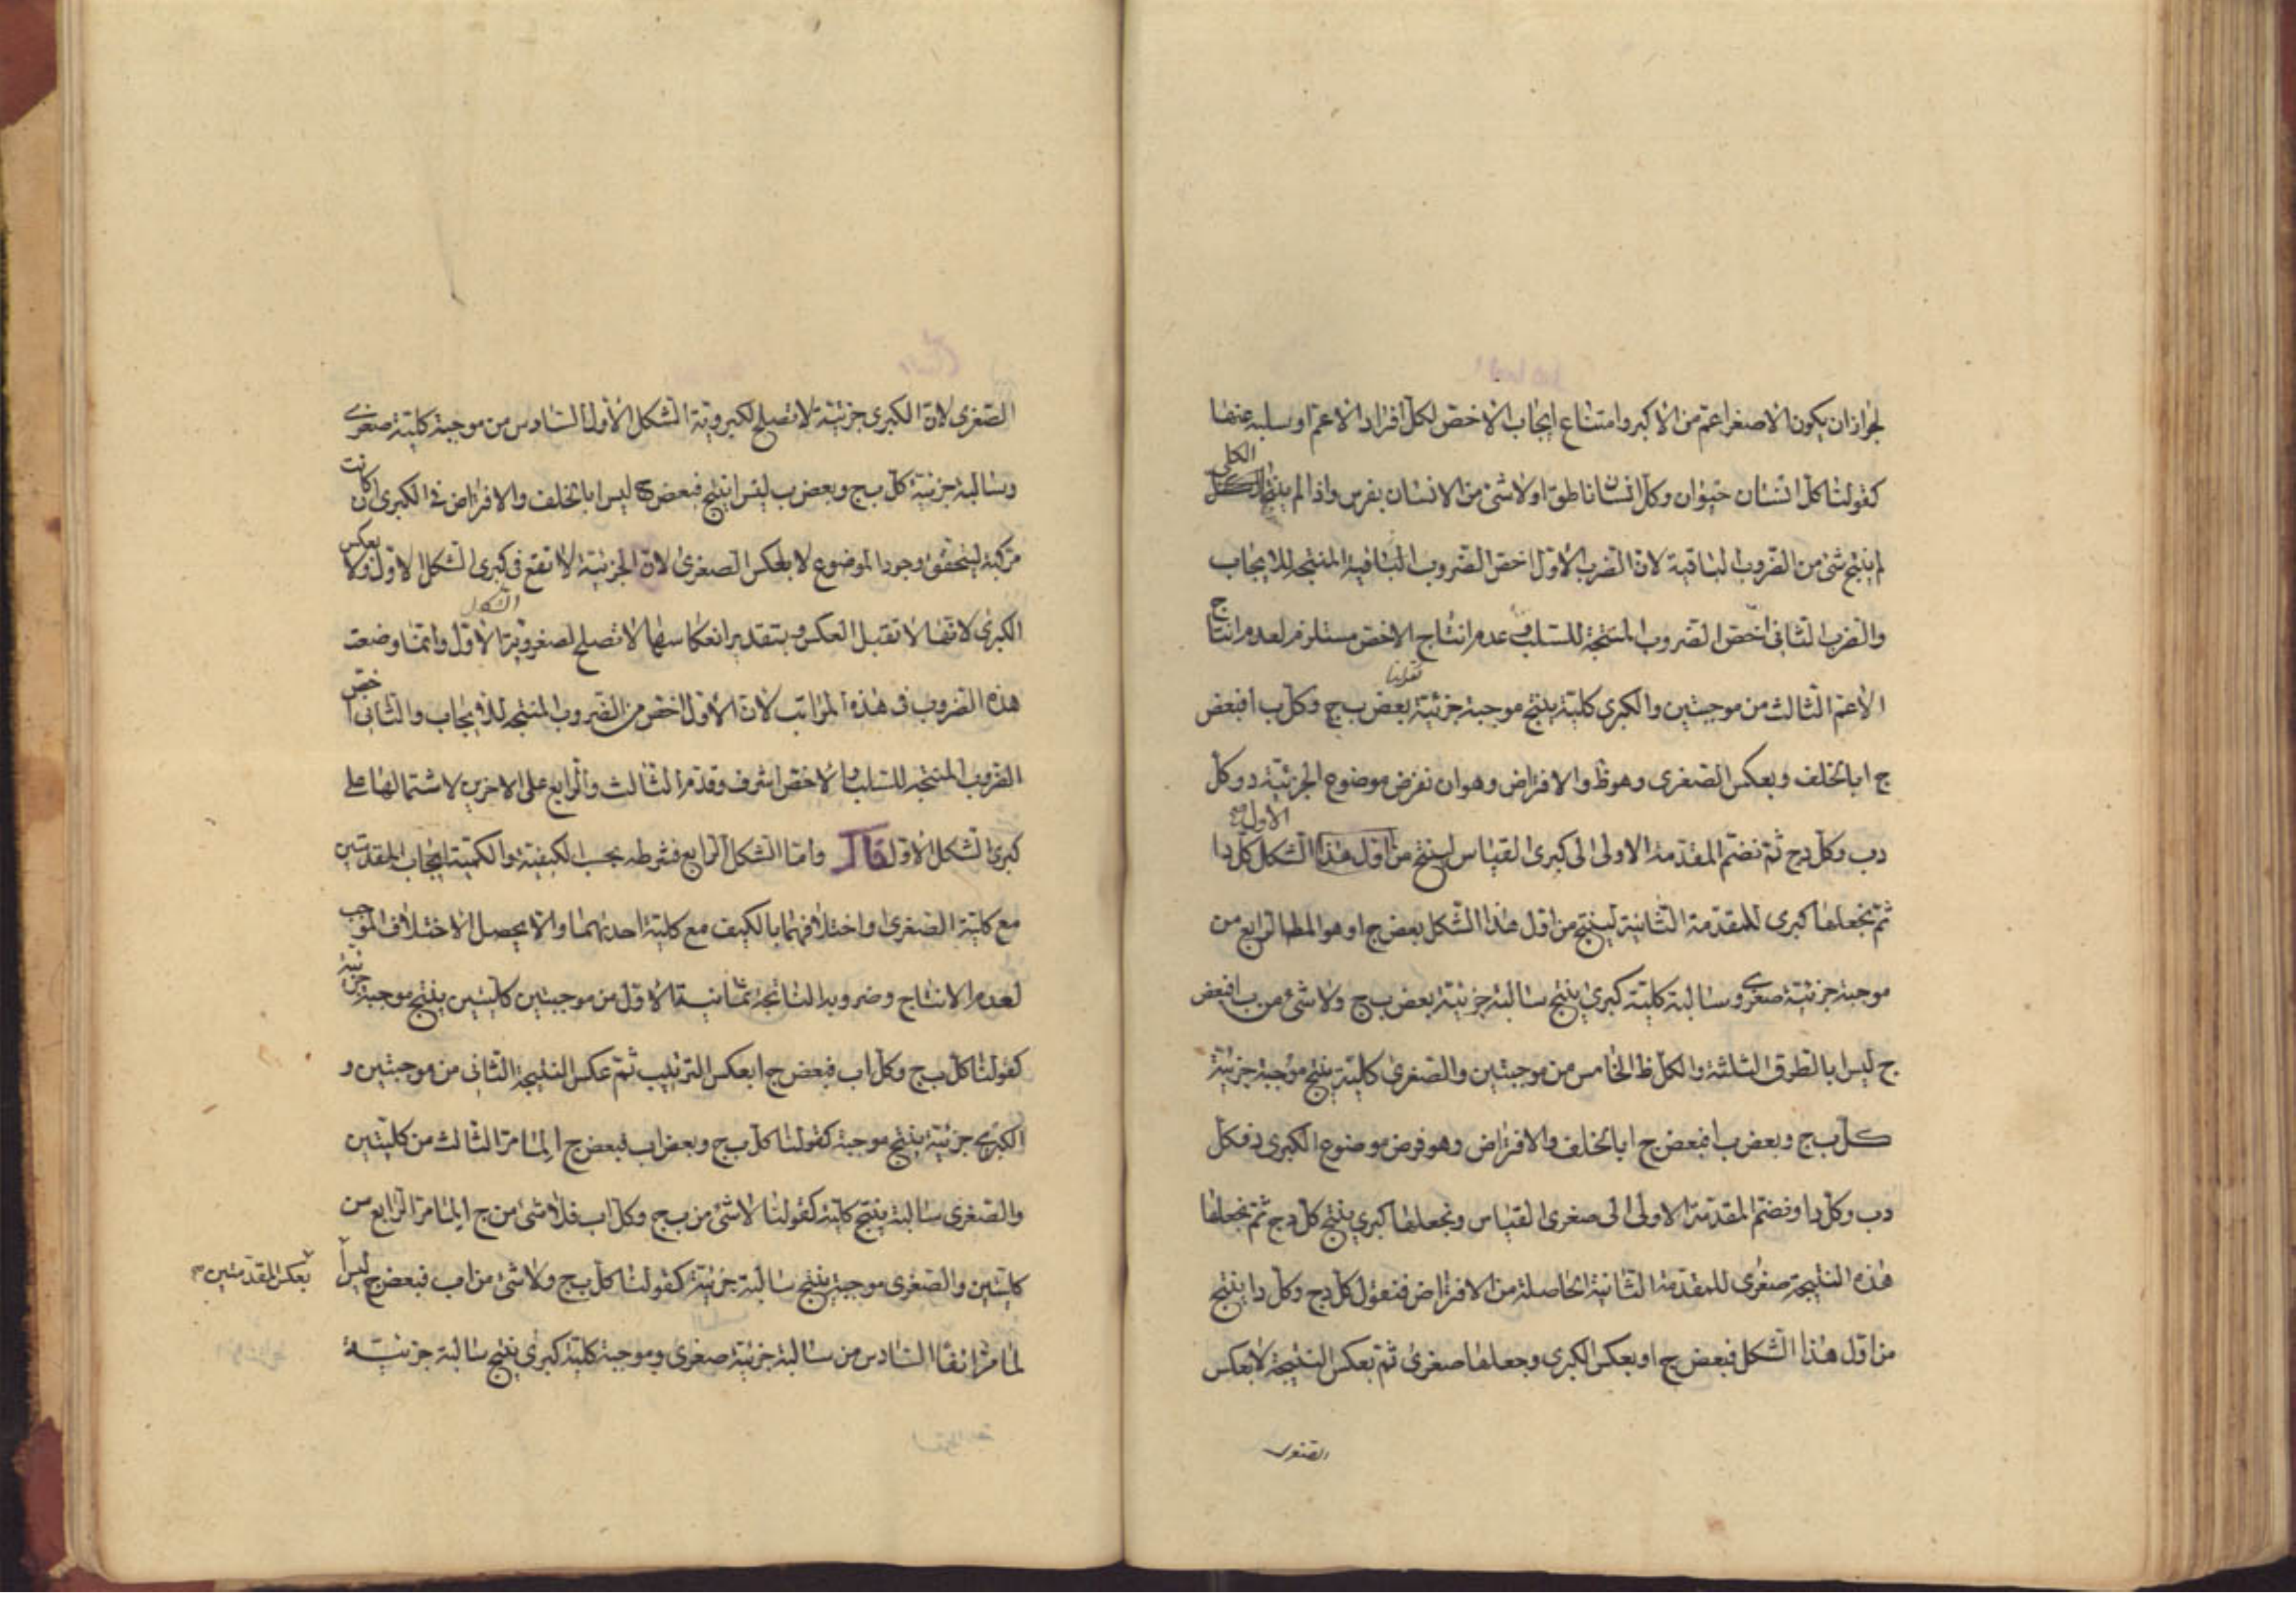 لجواز ان يكون الاصغر اعم من الاكبر وامتناع ايجاب الاخص لكل افراد الاعم او سلبه عنها
الكلى
كقولنا كل انسان حيوان وكل انسان ناطق او لا شئ من الانسان بفرس واذا لم ينتج
لم ينتج شئ من الضروب الباقية لان الضرب الاول اخص الضروب الباقية المنتجة للايجاب
والضرب الثانى اخص الضروب المنتجة للسلب وعدم انتاج الاخص مستلزم لعدم انتاج
الاعم الثالث من موجبتين والكبرى كلية ينتج موجبة جزئية بعض ب ج وكل ب ا فبعض
ج ا بالخلف وبعكس الصغرى وهو ظ والافتراض وهو ان نفرض موضوع الجزئية د وكل
الاول
د ب وكل د ج ثم نضم المقدمة الاولى الى كبرى القياس لينتج من اول هذا الشكل كل د ا
ثم نجعلها كبرى للمقدمة الثانية لينتج من اول هذا الشكل بعض ج ا وهو المط الرابع من
موجبة جزئية صغرى وسالبة كلية كبرى ينتج سالبة جزئية بعض ب ج ولا شئ من ب ا فبعض
ج ليس ا بالطرق الثلثة والكل ظ الخامس من موجبتين والصغرى كلية ينتج موجبة جزئية
كل ب ج وبعض ب ا فبعض ج ا بالخلف والافتراض وهو فرض موضوع الكبرى د فكل
د ب وكل د ا ونضم المقدمة الاولى الى صغرى القياس ونجعلها كبرى ينتج كل د ج ثم نجعلها
هذه النتيجة صغرى للمقدمة الثانية الحاصلة من الافتراض فنقول كل د ج وكل د ا ينتج
من اول هذا الشكل فبعض ج ا وبعكس الكبرى وجعلها صغرى ثم بعكس النتيجة لا بعكس
الصغرى
الصغرى لان الكبرى جزئية لا تصلح لكبروية الشكل الاول السادس من موجبة كلية صغرى
وسالبة جزئية كل ب ج وبعض ب ليس ا ينتج فبعض ج ليس ا بالخلف والافتراض فى الكبرى ان كانت
مركبة ليتحقق وجود الموضوع لا بعكس الصغرى لان الجزئية لا تقع فى كبرى الشكل الاول ولا بعكس
الشكل
الكبرى لانها لا تقبل العكس وبتقدير انعكاسها لا تصلح لصغروية الاول وانما وضعت
هذه الضروب فى هذه المراتب لان الاول اخص من الضروب المنتجة للايجاب والثانى اخص
الضروب المنتجة للسلب والاخص اشرف وقدم الثالث والرابع على الاخرين لاشتمالهما على
كبرى الشكل الاول قال واما الشكل الرابع فشرطه بحسب الكيفية والكمية ايجاب المقدمتين
مع كلية الصغرى واختلافهما بالكيف مع كلية احديهما والا يحصل الاختلاف الموجب
لعدم الانتاج وضروبه الناتجة ثمانية الاول من موجبتين كليتين ينتج موجبة جزئية
كقولنا كل ب ج وكل ا ب فبعض ج ا بعكس الترتيب ثم عكس النتيجة الثانى من موجبتين و
الكبرى جزئية ينتج موجبة كقولنا كل ب ج وبعض ا ب فبعض ج ا لما مر الثالث من كليتين
والصغرى سالبة ينتج كلية كقولنا لا شئ من ب ج وكل ا ب فلا شئ من ج ا لما مر الرابع من
كليتين والصغرى موجبة ينتج سالبة جزئية كقولنا كل ب ج ولا شئ من ا ب فبعض ج ليس ا
بعكس المقدمتين
لما مر انفا السادس من سالبة جزئية صغرى وموجبة كلية كبرى ينتج سالبة جزئية